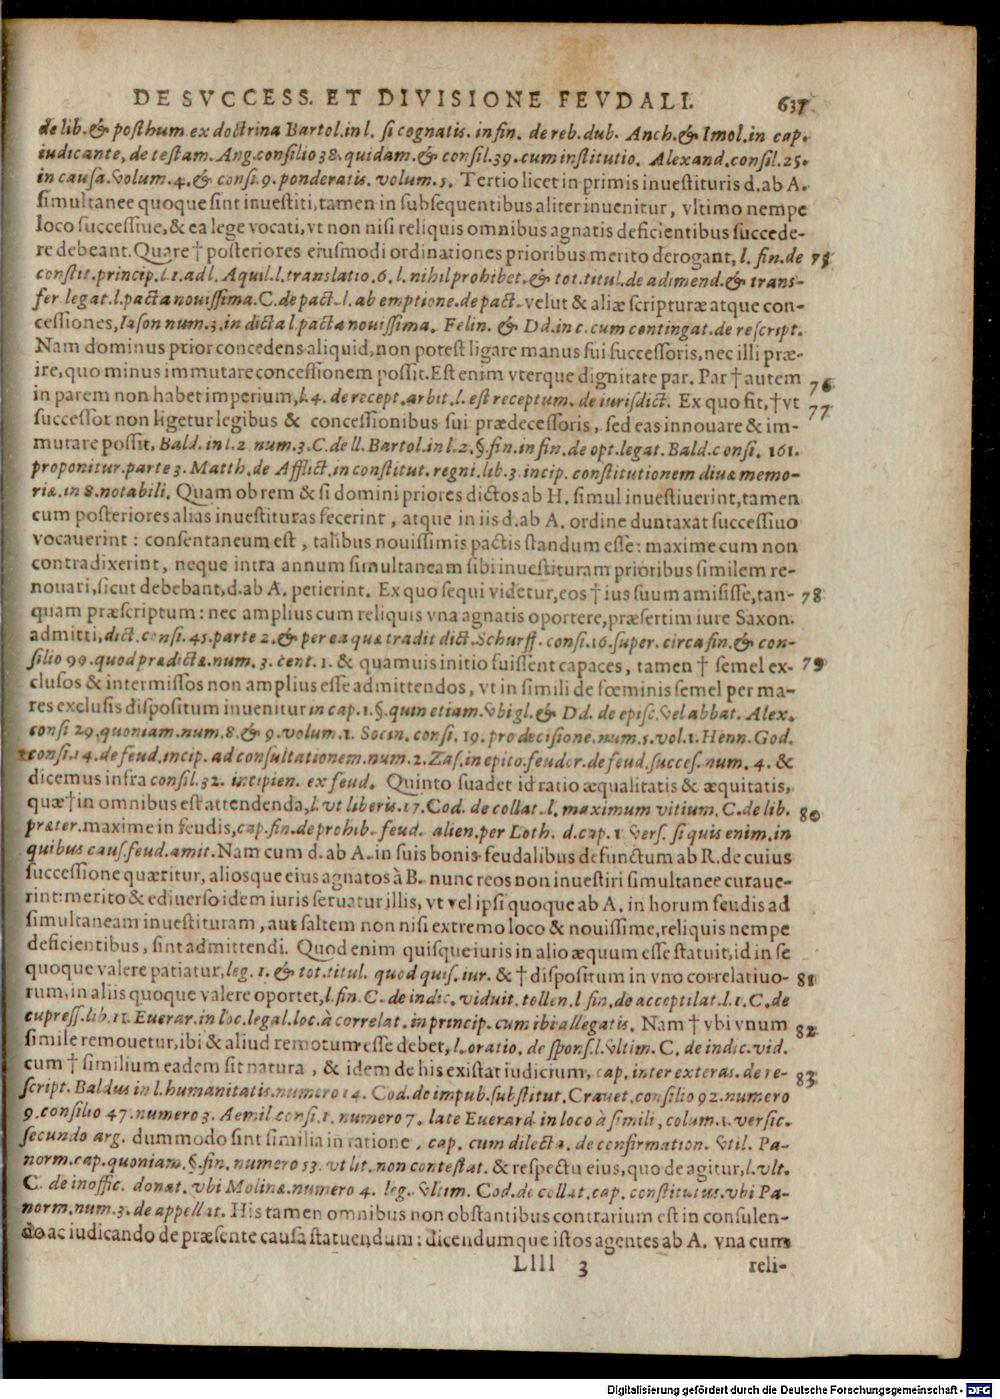 DE SVCCESS. ET DIVISIONE FEVDALI. 637
de lib. & posthum. ex doctrina Bartol. in l. si cognatis. in fin. de reb. dub. Anch. & Imol. in cap.
iudicante, de testam. Ang. consilio 38. quidam. & consil. 39. cum institutio. Alexand. consil. 25.
in causa. volum. 4. & consi. 9. ponderatis. volum. 5. Tertio licet in primis inuestituris d. ab A.
simultanee quoque sint inuestiti, tamen in subsequentibus aliter inuenitur, vltimo nempe
loco successiue, & ea lege vocati, vt non nisi reliquis omnibus agnatis deficientibus succede-
re debeant. Quare † posteriores eiusmodi ordinationes prioribus merito derogant, l. fin. de 75
constit. princip. l. 1. ad l. Aquil. l. translatio. 6. l. nihil prohibet. & tot. titul. de adimend. & trans-
fer legat. l. pacta nouissima. C. de pact. l. ab emptione. de pact. velut & aliæ scripturæ atque con-
cessiones, Iason num. 3. in dicta l. pacta nouissima. Felin. & Dd. in c. cum contingat. de rescript.
Nam dominus prior concedens aliquid, non potest ligare manus sui successoris, nec illi præ-
ire, quo minus immutare concessionem possit. Est enim vterque dignitate par. Par † autem 76
in parem non habet imperium, l. 4. de recept. arbit. l. est receptum. de iurisdict. Ex quo fit, † vt 77
successor non ligetur legibus & concessionibus sui prædecessoris, sed eas innouare & im-
mutare possit, Bald. in l. 2 num. 3. C. de ll. Bartol. in l. 2. §. fin. in fin. de opt. legat. Bald. consi. 161.
proponitur. parte 3. Matth. de Afflict. in constitut. regni. lib. 3. incip. constitutionem diuæ memo-
riæ. in 8. notabili. Quam ob rem & si domini priores dictos ab H. simul inuestiuerint, tamen
cum posteriores alias inuestituras fecerint, atque in iis d. ab A. ordine duntaxat successiuo
vocauerint: consentaneum est, talibus nouissimis pactis standum esse: maxime cum non
contradixerint, neque intra annum simultaneam sibi inuestituram prioribus similem re-
nouari, sicut debebant, d. ab A. petierint. Ex quo sequi videtur, eos † ius suum amisisse, tan- 78
quam præscriptum: nec amplius cum reliquis vna agnatis oportere, præsertim iure Saxon.
admitti, dict. consi. 45. parte 2. & per ea quæ tradit dict. Schurff. consi. 16. super. circa fin. & con-
silio 99. quod prædicta. num. 3. cent. 1. & quamuis initio fuissent capaces, tamen † semel ex- 79
clusos & intermissos non amplius esse admittendos, vt in simili de fœminis semel per ma-
res exclusis dispositum inuenitur in cap. 1. §. quin etiam. vbi gl. & Dd. de episc. vel abbat. Alex.
consi 29. quoniam. num. 8. & 9. volum. 1. Socin. consi. 19. pro decisione. num. 5. vol. 1. Henn. God.
consi. 14. de feud. incip. ad consultationem. num. 2. Zas. in epito. feudor. de feud. succes. num. 4. &
dicemus infra consil. 32. incipien. ex feud. Quinto suadet id ratio æqualitatis & æquitatis,
quæ † in omnibus est attendenda, l. vt liberis. 17. Cod. de collat. l. maximum vitium. C. de lib. 80
præter. maxime in feudis, cap. fin. de prohib. feud. alien. per Loth. d. cap. 1. Vers. si quis enim. in
quibus caus. feud. amit. Nam cum d. ab A. in suis bonis feudalibus defunctum ab R. de cuius
successione quæritur, aliosque eius agnatos à B. nunc reos non inuestiri simultanee curaue-
rint: merito & ediuerso idem iuris seruatur illis, vt vel ipsi quoque ab A. in horum feudis ad
simultaneam inuestituram, aut saltem non nisi extremo loco & nouissime, reliquis nempe
deficientibus, sint admittendi. Quod enim quisque iuris in alio æquum esse statuit, id in se
quoque valere patiatur, leg. 1. & tot. titul. quod quis. iur. & † dispositum in vno correlatiuo- 81
rum, in aliis quoque valere oportet, l. fin. C. de indic. viduit. tollen. l. fin. de acceptilat. l. 1. C. de
cupress. lib. 11. Euerar. in loc. legal. loc. à correlat. in princip. cum ibi allegatis. Nam † vbi vnum 82
simile remouetur, ibi & aliud remotum esse debet, l. oratio. de spons. l. vltim. C. de indic. vid.
cum † similium eadem sit natura, & idem de his existat iudicium, cap. inter exteras. de re- 83
script. Baldus in l. humanitatis. numero 14. Cod. de impub. substitut. Crauet. consilio 92. numero
9. consilio 47. numero 3. Aemil. consi. 1. numero 7. late Euerard. in loco à simili, colum. 1. versic.
secundo arg. dummodo sint similia in ratione, cap. cum dilecta. de confirmation. vtil. Pa-
norm. cap. quoniam. §. fin. numero 53. vt lit. non contestat. & respectu eius, quo de agitur, l. vlt.
C. de inoffic. donat. vbi Molinæ. numero 4. leg. vltim. Cod. de collat. cap. constitutus. vbi Pa-
norm. num. 3. de appellat. His tamen omnibus non obstantibus contrarium est in consulen-
do ac iudicando de præsente causa statuendum: dicendumque istos agentes ab A. vna cum
Llll 3 reli-
Digitalisierung gefördert durch die Deutsche Forschungsgemeinschaft - DFG